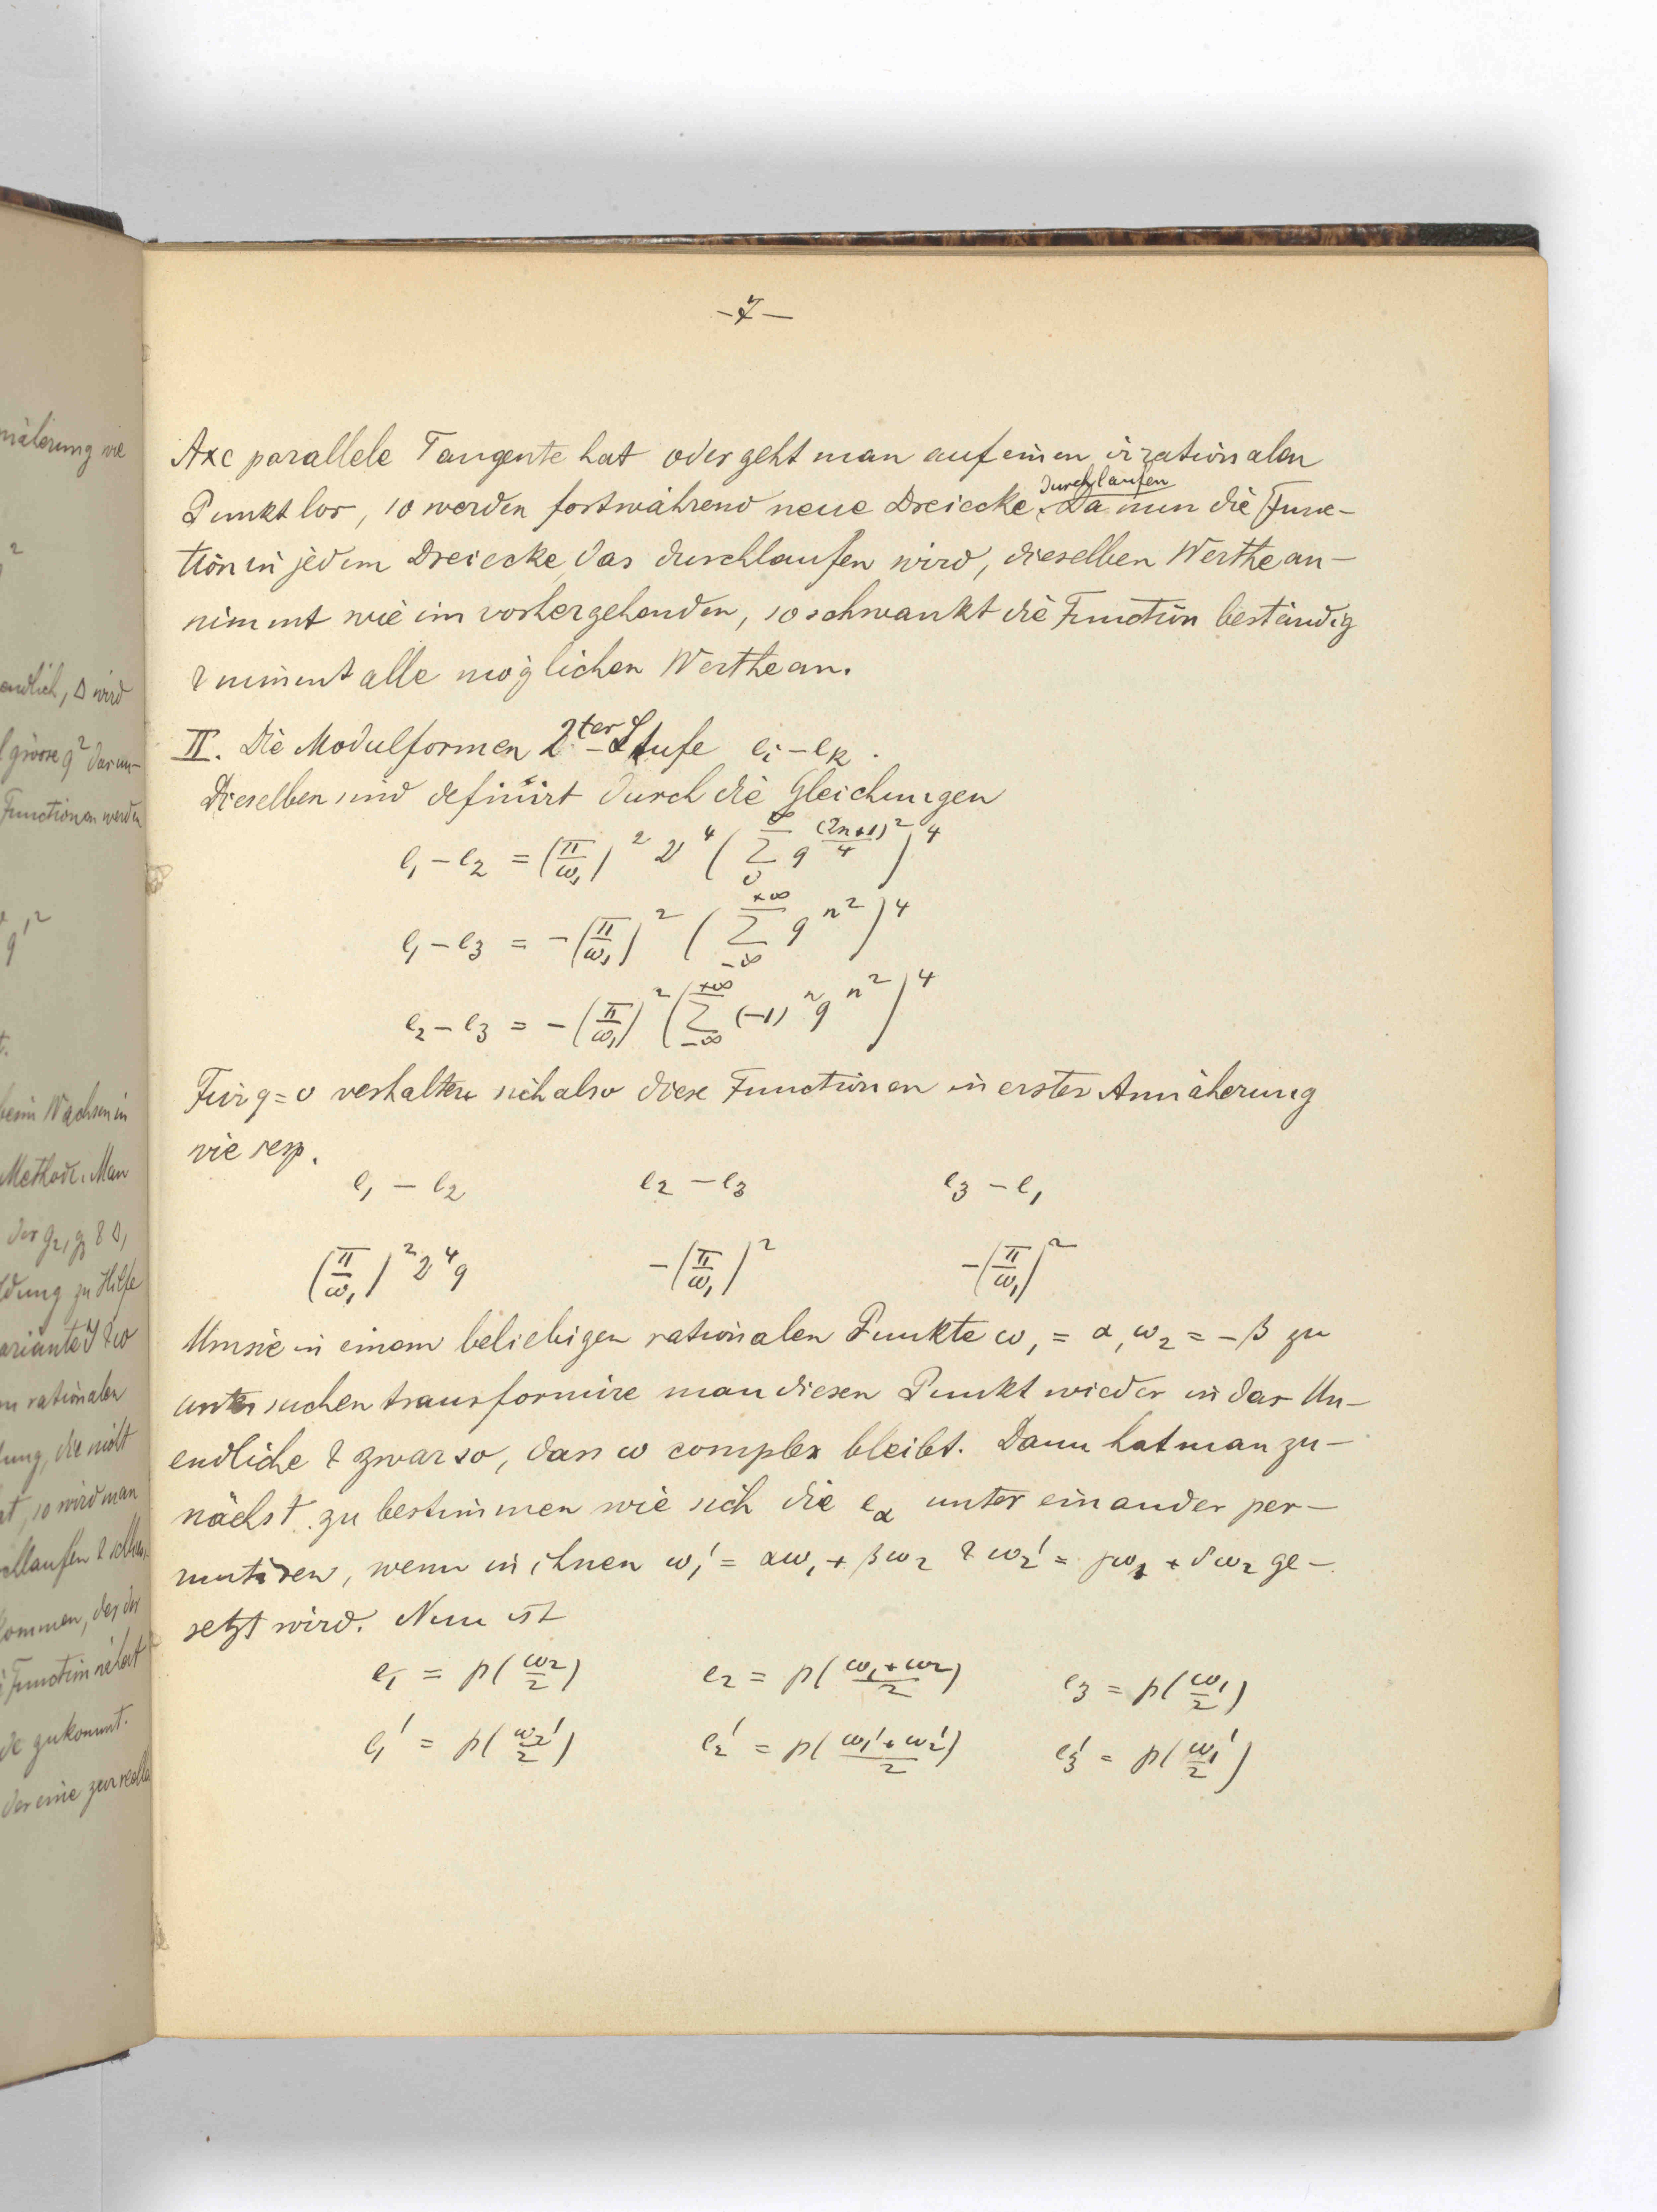 -7-
Axe parallele Tangente hat oder geht man auf einen irrationalen
durchlaufen
Punkt los, so werden fortwährend neue Dreiecke. Da nun die Func-
tion in jedem Dreiecke, das durchlaufen wird, dieselben Werthe an-
nimmt wie im vorhergehenden, so schwankt die Function beständig
& nimmt alle möglichen Werthe an.
II. Die Modulformen 2ter Stufe e_i - e_k.
Dieselben sind definirt durch die Gleichungen
e_1 - e_2 = (π/ω_1)^2 2^4 (∑_0^∞ q^{(2n+1)^2/4})^4
e_1 - e_3 = -(π/ω_1)^2 (∑_{-∞}^{+∞} q^{n^2})^4
e_2 - e_3 = -(π/ω_1)^2 (∑_{-∞}^{+∞} (-1)^n q^{n^2})^4
Für q=0 verhalten sich also diese Functionen in erster Annäherung
wie resp.
e_1 - e_2 e_2 - e_3 e_3 - e_1
(π/ω_1)^2 2^4 q -(π/ω_1)^2 -(π/ω_1)^2
Um sie in einem beliebigen rationalen Punkte ω_1 = α, ω_2 = -β zu
untersuchen transformire man diesen Punkt wieder in das Un-
endliche & zwar so, dass ω complex bleibt. Dann hat man zu-
nächst zu bestimmen wie sich die e_α unter einander per-
mutiren, wenn in ihnen ω_1' = αω_1 + βω_2 & ω_2' = γω_1 + δω_2 ge-
setzt wird. Nun ist
e_1 = p(ω_2/2) e_2 = p((ω_1+ω_2)/2) e_3 = p(ω_1/2)
e_1' = p(ω_2'/2) e_2' = p((ω_1'+ω_2')/2) e_3' = p(ω_1'/2)